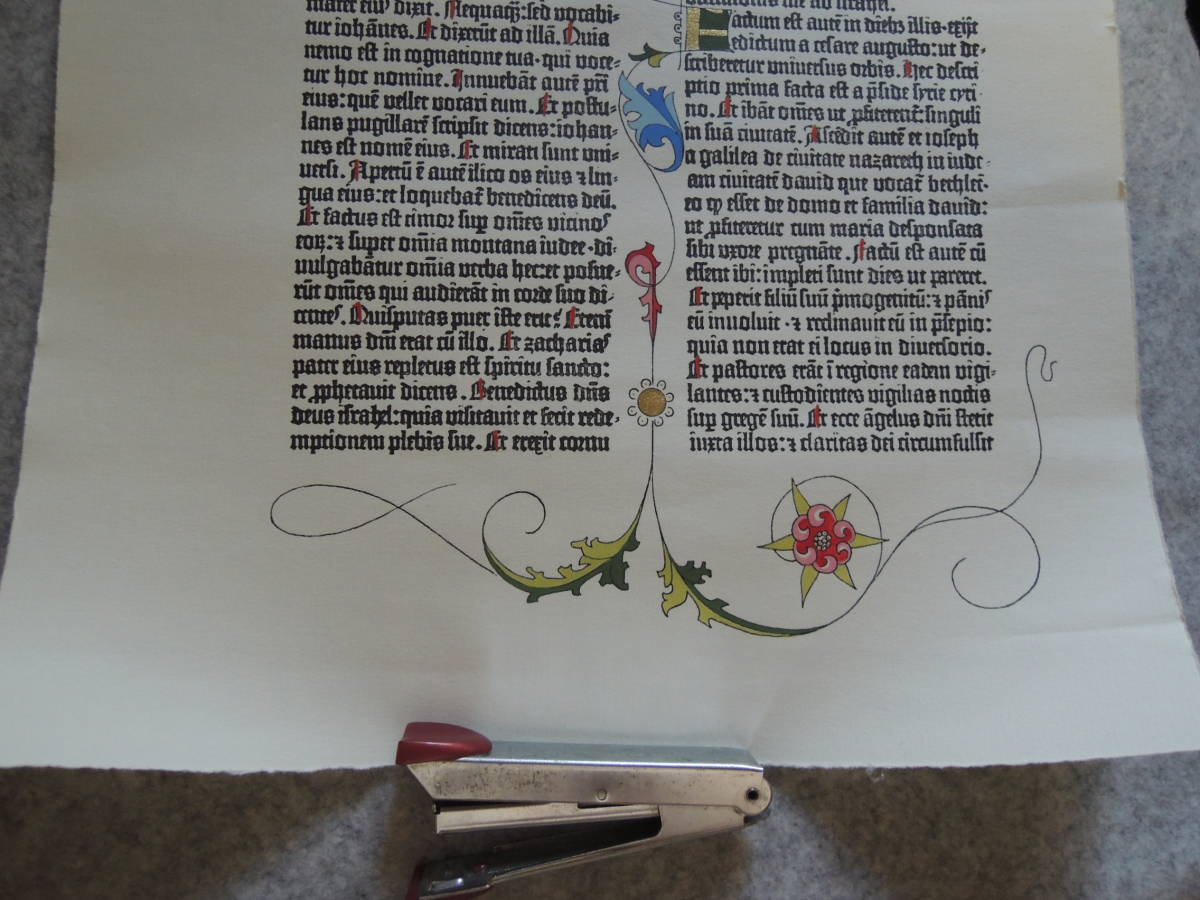 mater eiꝰ dixit. Nequaqᷓ: sed vocabi⸗
tur iohānes. Et dixerūt ad illā. Quia
nemo est in cognatione tua · qui voce⸗
tur hoc nomine. Innuebāt autē pr̄i
eius: quē vellet vocari eum. Et postu⸗
lans pugillarē scripsit dicens: iohan⸗
nes est nomē eius. Et mirati sunt vni⸗
uersi. Apertū ē autē ilico os eius ⁊ lin⸗
gua eius: et loquebat᷑ benedicens deū.
Et factus est timor sup̱ om̄es vicinos
eoꝝ: ⁊ super om̄ia montana iudee · di⸗
uulgabātur om̄ia verba hec: et posue⸗
rūt om̄es qui audierāt in corde suo di⸗
centes. Quis putas puer iste erit? Eteni
manus dn̄i erat cū illo. Et zacharias
pater eius repletus est spiritu sancto:
et ꝓphetauit dicens. Benedictus dn̄s
deus israhel: quia visitauit et fecit rede⸗
mptionem plebis sue. Et erexit cornu
Factum est autē in dieb᷒ illis · exijt
edictum a cesare augusto: ut de⸗
scriberetur vniuersus orbis. Hec descri
ptio prima facta est a p̄side syrie cyri
no. Et ibāt om̄es ut ꝓfiterent᷑: singuli
in suā ciuitatē. Ascēdit autē et ioseph
a galilea de ciuitate nazareth in iude⸗
am ciuitatē dauid que vocat᷑ bethleē ·
eo ꝙ esset de domo et familia dauid:
ut ꝓfiteretur cum maria desponsata
sibi vxore pregnāte. Factū est autē cū
essent ibi: impleti sunt dies ut pareret.
Et peperit filiū suū p̄mogenitū: ⁊ pānis
eū inuoluit · ⁊ reclinauit eū in p̄sepio:
quia non erat ei locus in diuersorio.
Et pastores erāt ī regione eadem vigi⸗
lantes: ⁊ custodientes vigilias noctis
sup̱ gregē suū. Et ecce āgelus dn̄i stetit
iuxta illos: ⁊ claritas dei circumfulsit